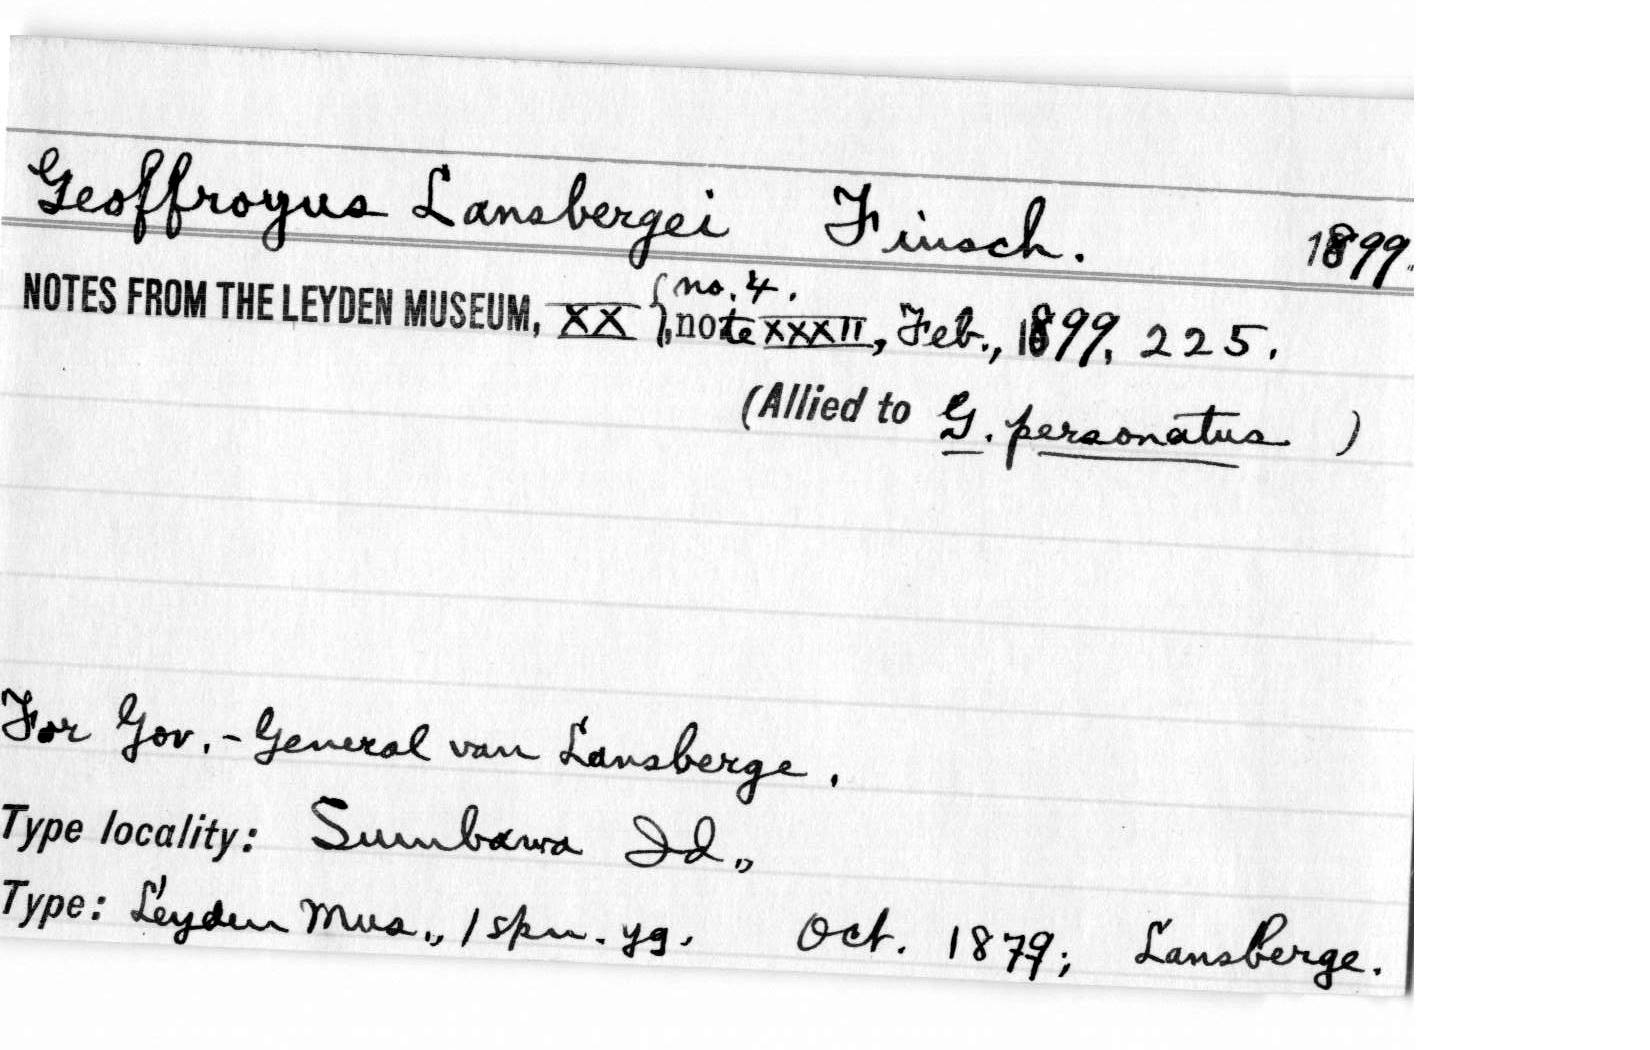 Geoffroyus Lansbergei Finsch. 1899.
NOTES FROM THE LEYDEN MUSEUM, XX { no. 4.
, note XXXII, Feb., 1899, 225.
(Allied to G. personatus )
For Gov.-General van Lansberge.
Type locality: Sumbawa Id.,
Type: Leyden Mus., 1 spn. yg. Oct. 1879; Lansberge.